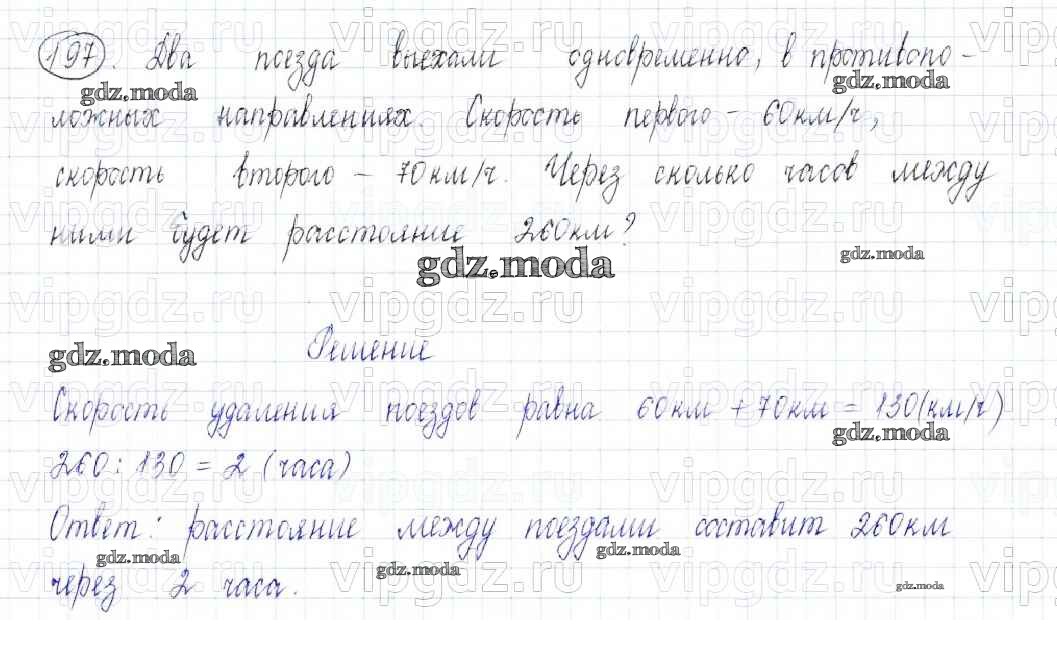 197. Два поезда выехали одновременно, в противопо-
gdz.moda gdz.moda
ложных направлениях. Скорость первого - 60км/ч,
скорость второго - 70км/ч. Через сколько часов между
ними будет расстояние 260км?
gdz.moda gdz.moda
gdz.moda Решение
Скорость удаления поездов равна 60км + 70км = 130(км/ч)
gdz.moda
260 : 130 = 2 (часа)
Ответ: расстояние между поездами составит 260км
gdz.moda gdz.moda gdz.moda
через 2 часа.
gdz.moda
vipgdz.ru